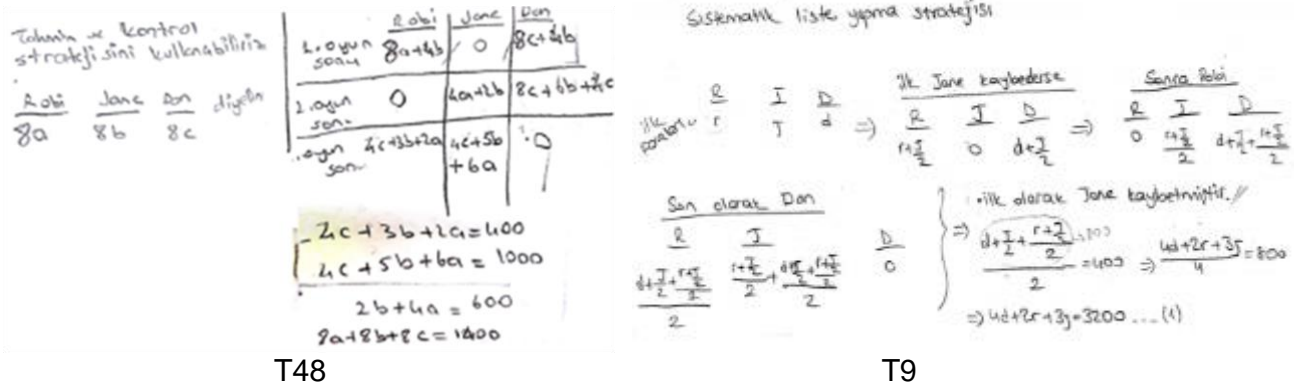 Tahmin ve kontrol
stratejisini kullanabiliriz
Robi Jane Don diyelim
8a 8b 8c
Robi Jane Don
1. oyun sonu 8a+4b 0 8c+4b
2. oyun son. 0 4a+2b
.oyun son. 4c+3b+2a 4c+5b+6a 0
4c+3b+2a=400
4c+5b+6a=1000
2b+4a=600
8a+8b+8c=1400
T48
Sistematik liste yapma stratejisi
ilk paraları
R J D
r J d
⇒
İlk Jane kaybederse
R J D
r+J/2 0 d+J/2
⇒
Sonra Robi
R J D
0 (r+J/2)/2 d+J/2+(r+J/2)/2
Son olarak Don
R J D
(d+J/2+(r+J/2)/2)/2 (r+J/2)/2+(d+J/2+(r+J/2)/2)/2 0
•ilk olarak Jane kaybetmiştir.//
⇒ (d+J/2+(r+J/2)/2)/2=400 ⇒ (4d+2r+3J)/4=800
⇒ 4d+2r+3j=3200 ....(1)
T9